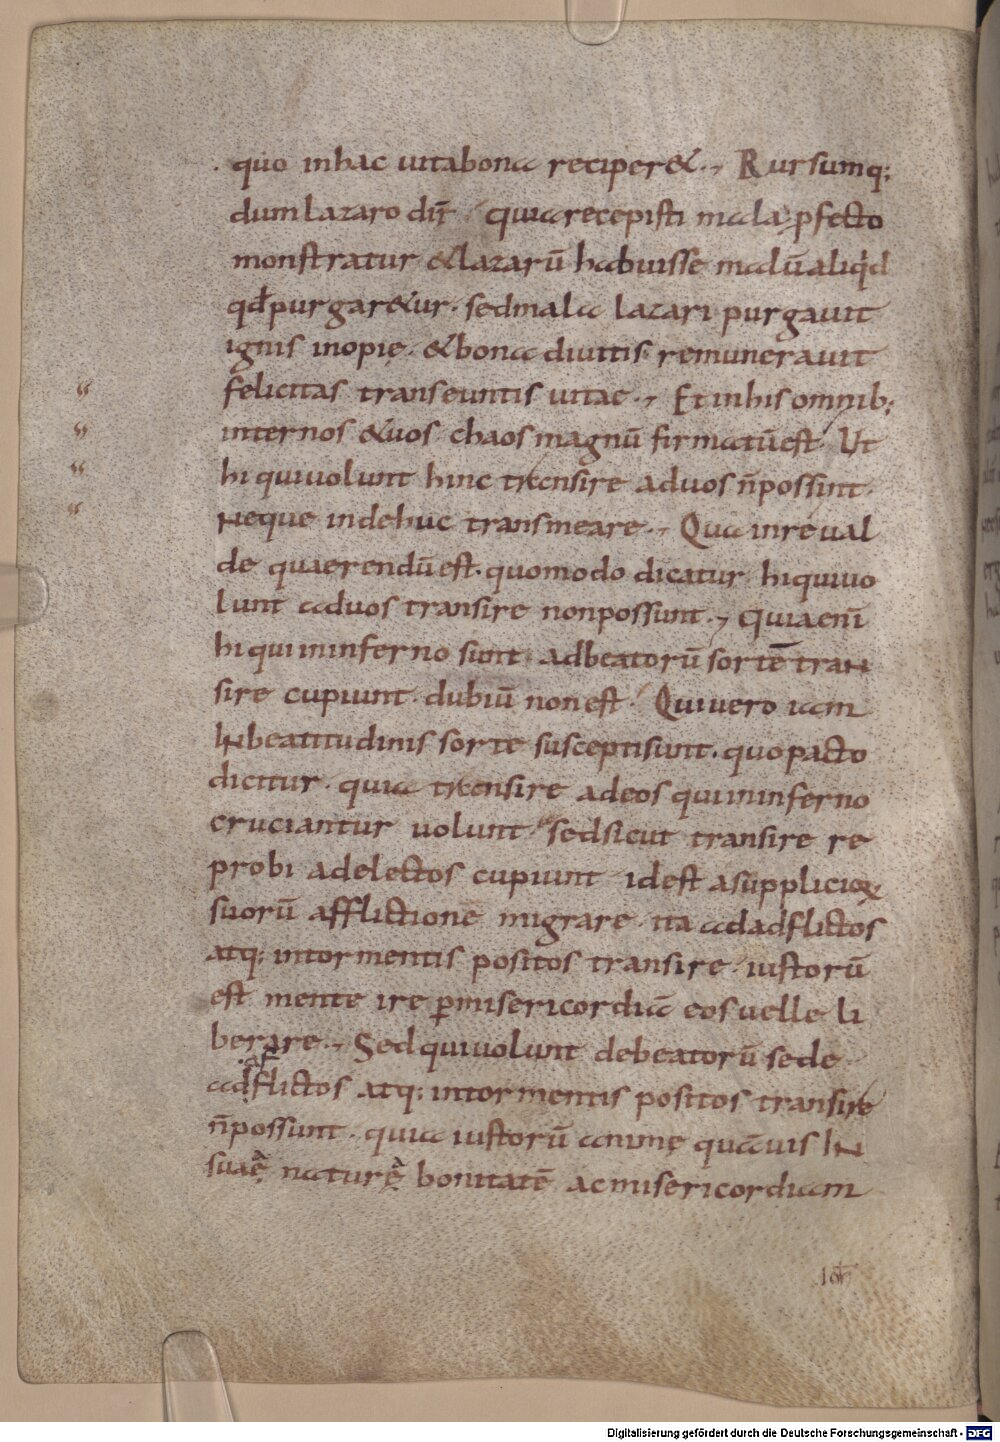 quo in hac uita bona reciper&. Rursumq;
dum lazaro dr̄ quia recepisti mala, pfecto
monstratur & lazarū habuisse malū aliqid
qđ purgar&ur. sed mala lazari purgauit
ignis inopię. & bona diuitis remunerauit
felicitas transeuntis uitae. Et in his omnib;
inter nos & uos chaos magnū firmatū est. Ut
hi qui uolunt hinc transire ad uos n̄ possint.
Neque inde huc transmeare. Qua in re ual
de quaerendū est. quomodo dicatur hi qui uo
lunt ad uos transire non possunt. Quia eni̅
hi qui in inferno sunt ad beatorū sortē tran
sire cupiunt. dubiū non est. Qui uero iam
IN beatitudinis sorte suscepti sunt. quo pacto
dicitur. quia transire ad eos qui in inferno
cruciantur uolunt. sed sicut transire re
probi ad electos cupiunt id est a suppliciorꝝ
suorū afflictione migrare. ita ad adflictos
atq; in tormentis positos transire. iustorū
est mente ire p̱ misericordiā eos uelle li
berare. Sed qui uolunt de beatorū sede
.af
adflictos atq; in tormentis positos transire
n̄ possunt. quia iustorū animę quāuis IN
suaę naturę bonitatē ac misericordiam
Digitalisierung gefördert durch die Deutsche Forschungsgemeinschaft - DFG